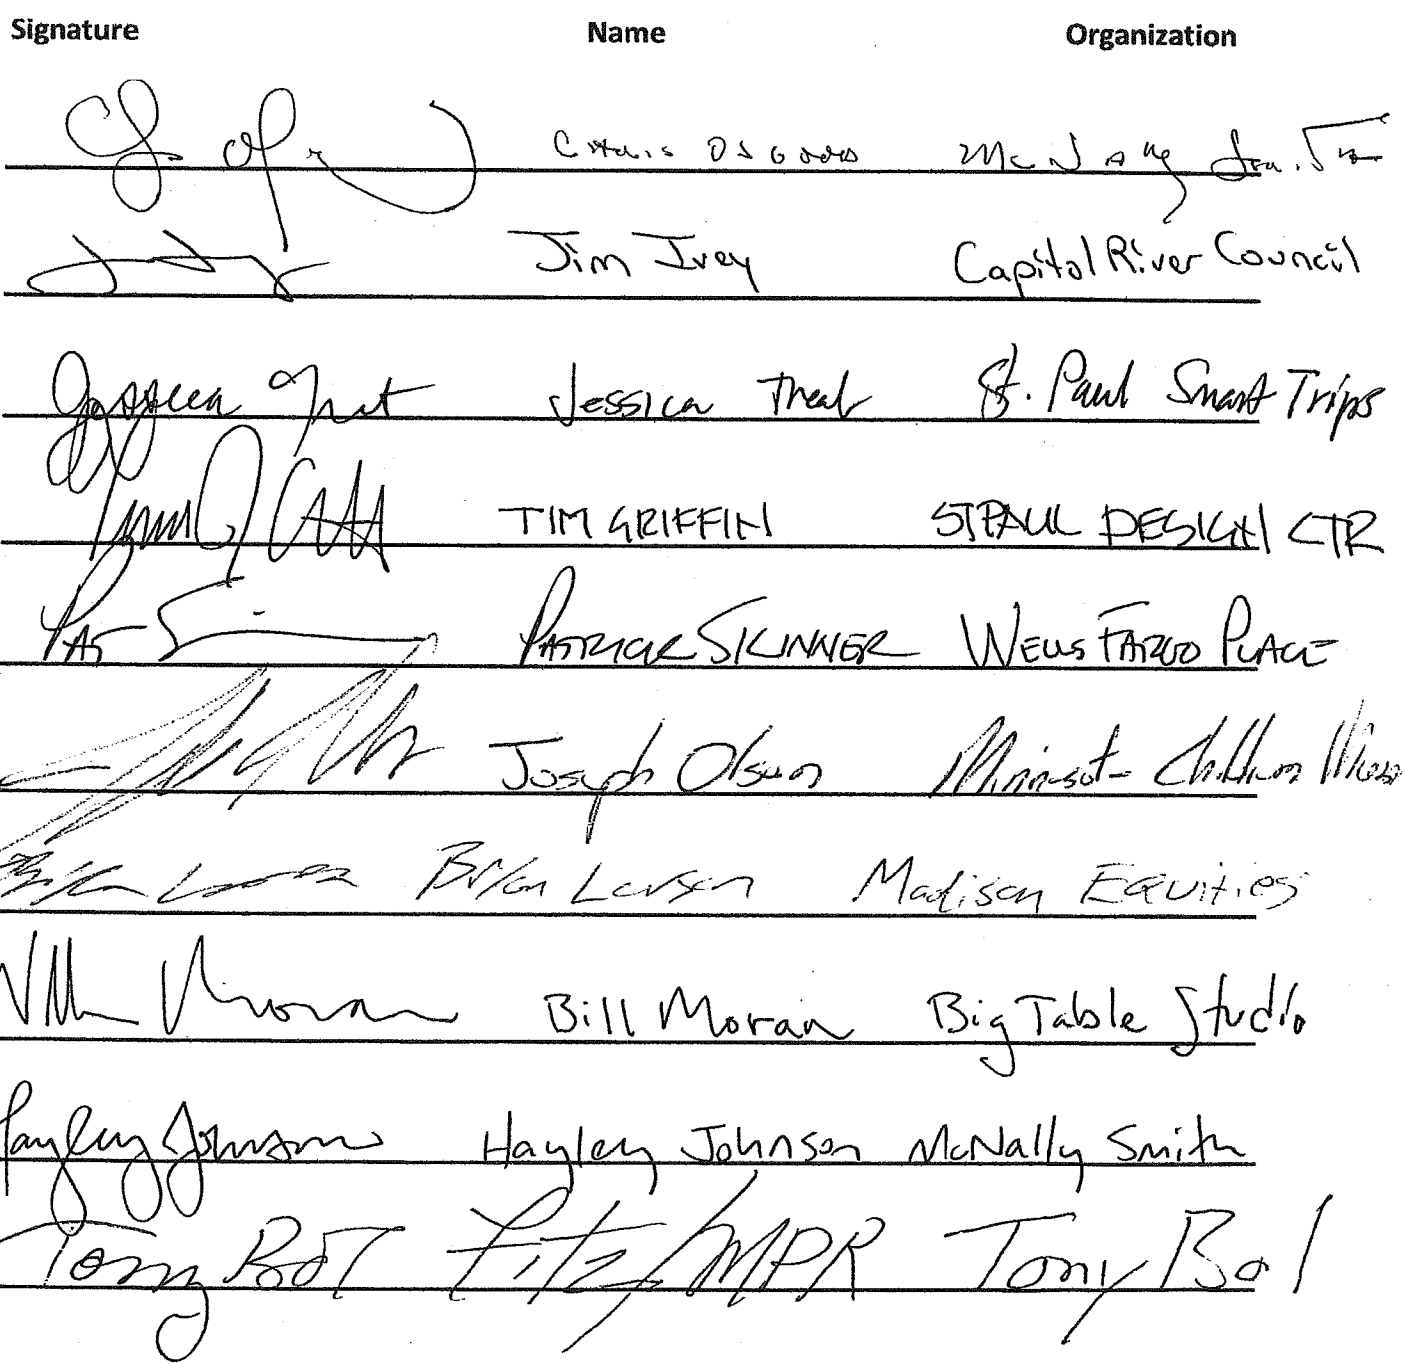 Signature Name Organization
Chris Osgood McNally
Jim Ivey Capitol River Council
Jessica Treat Jessica Treat St. Paul Smart Trips
TIM GRIFFIN ST PAUL DESIGN CTR
PAT PATRICK SKINNER WELLS FARGO PLACE
Joseph Olson Minnesota Children Museum
Brian Larson Brian Larson Madison Equities
Moran Bill Moran Big Table Studio
Hayley Johnson Hayley Johnson McNally Smith
Tony Bol Fitz/MPR Tony Bol